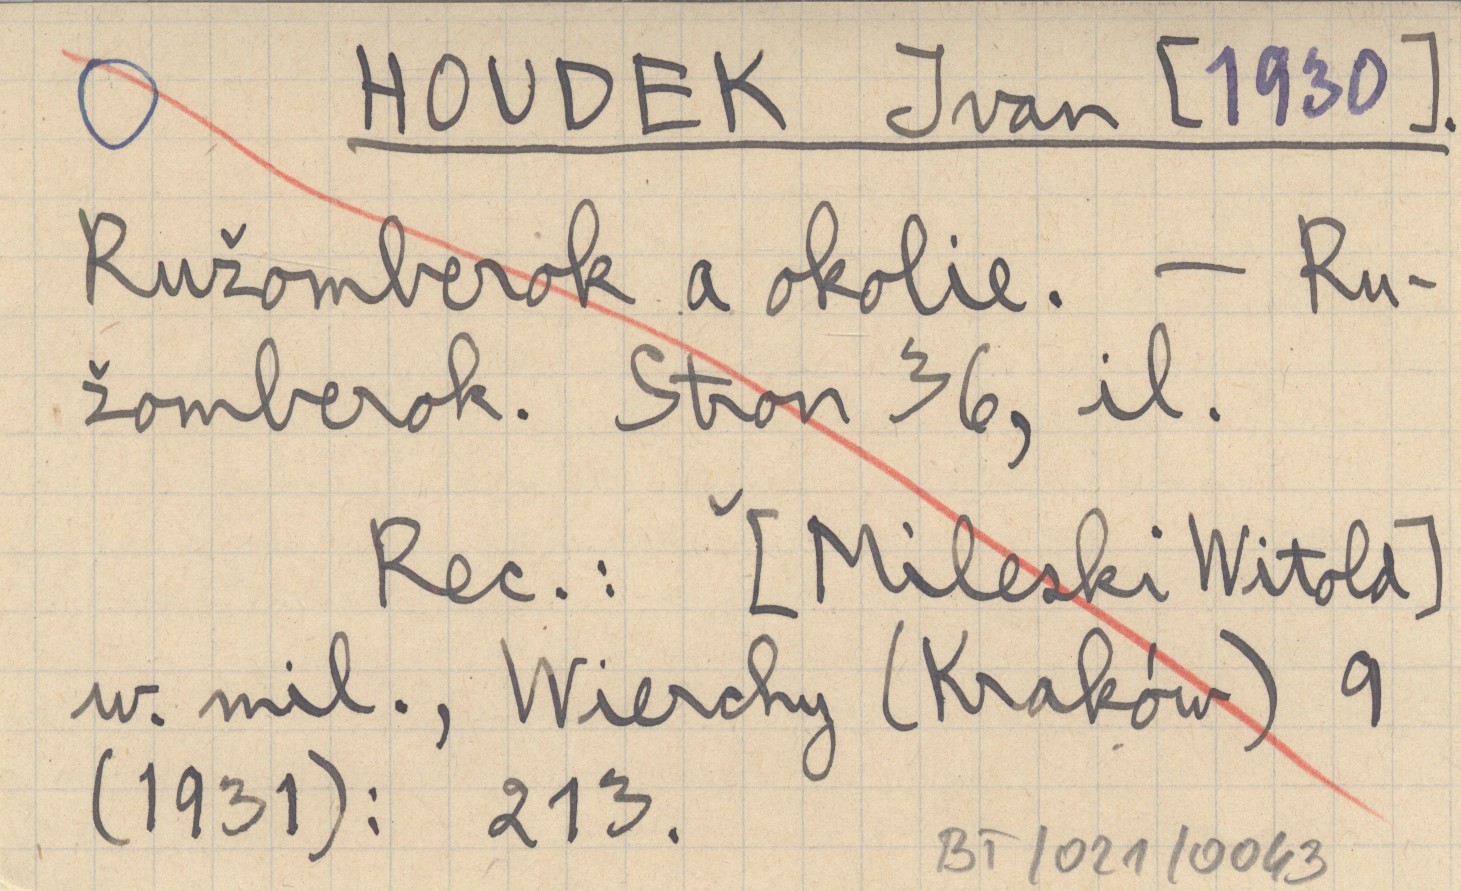 HOUDEK Ivan [1930].
Ružomberok a okolie. — Ru-
žomberok. Stron 36, il.
Rec.: ˇ[Mileski Witold]
w. mil., Wierchy (Kraków) 9
(1931): 213.
BT/021/0043